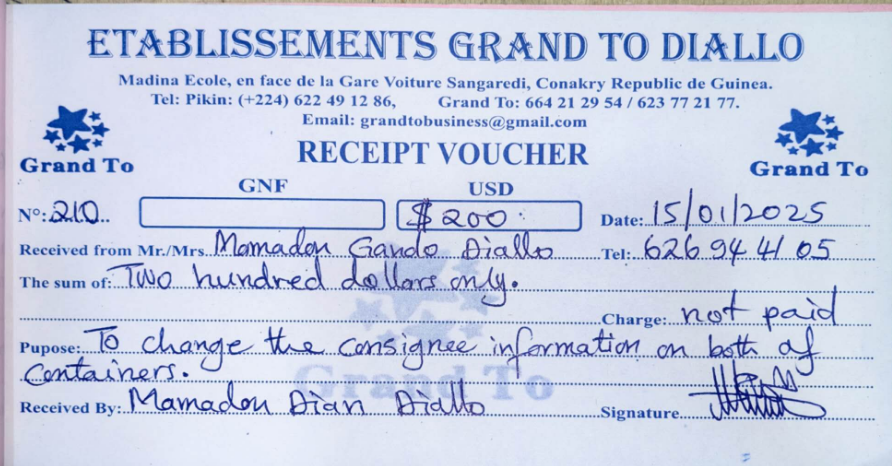 ETABLISSEMENTS GRAND TO DIALLO
Madina Ecole, en face de la Gare Voiture Sangaredi, Conakry Republic de Guinea.
Tel: Pikin: (+224) 622 49 12 86, Grand To: 664 21 29 54 / 623 77 21 77.
Email: grandtobusiness@gmail.com
Grand To
RECEIPT VOUCHER
Grand To
GNF USD
N°: 210 $ 200 Date: 15/01/2025
Received from Mr./Mrs. Mamadou Gando Diallo Tel: 626 94 41 05
The sum of: Two hundred dollars only.
Charge: not paid
Pupose: To change the consignee information on both of
Containers.
Grand To
Received By: Mamadou Dian Diallo Signature